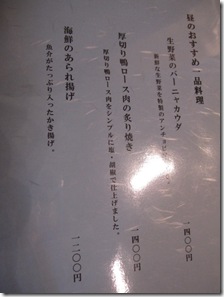 昼のおすすめ一品料理
生野菜のバーニャカウダ
新鮮な生野菜を特製のアンチョビ
一四〇〇円
厚切り鴨ロース肉の炙り焼き
厚切り鴨ロース肉をシンプルに塩・胡椒で仕上げました。
一四〇〇円
海鮮のあられ揚げ
魚介がたっぷり入ったかき揚げ。
一二〇〇円